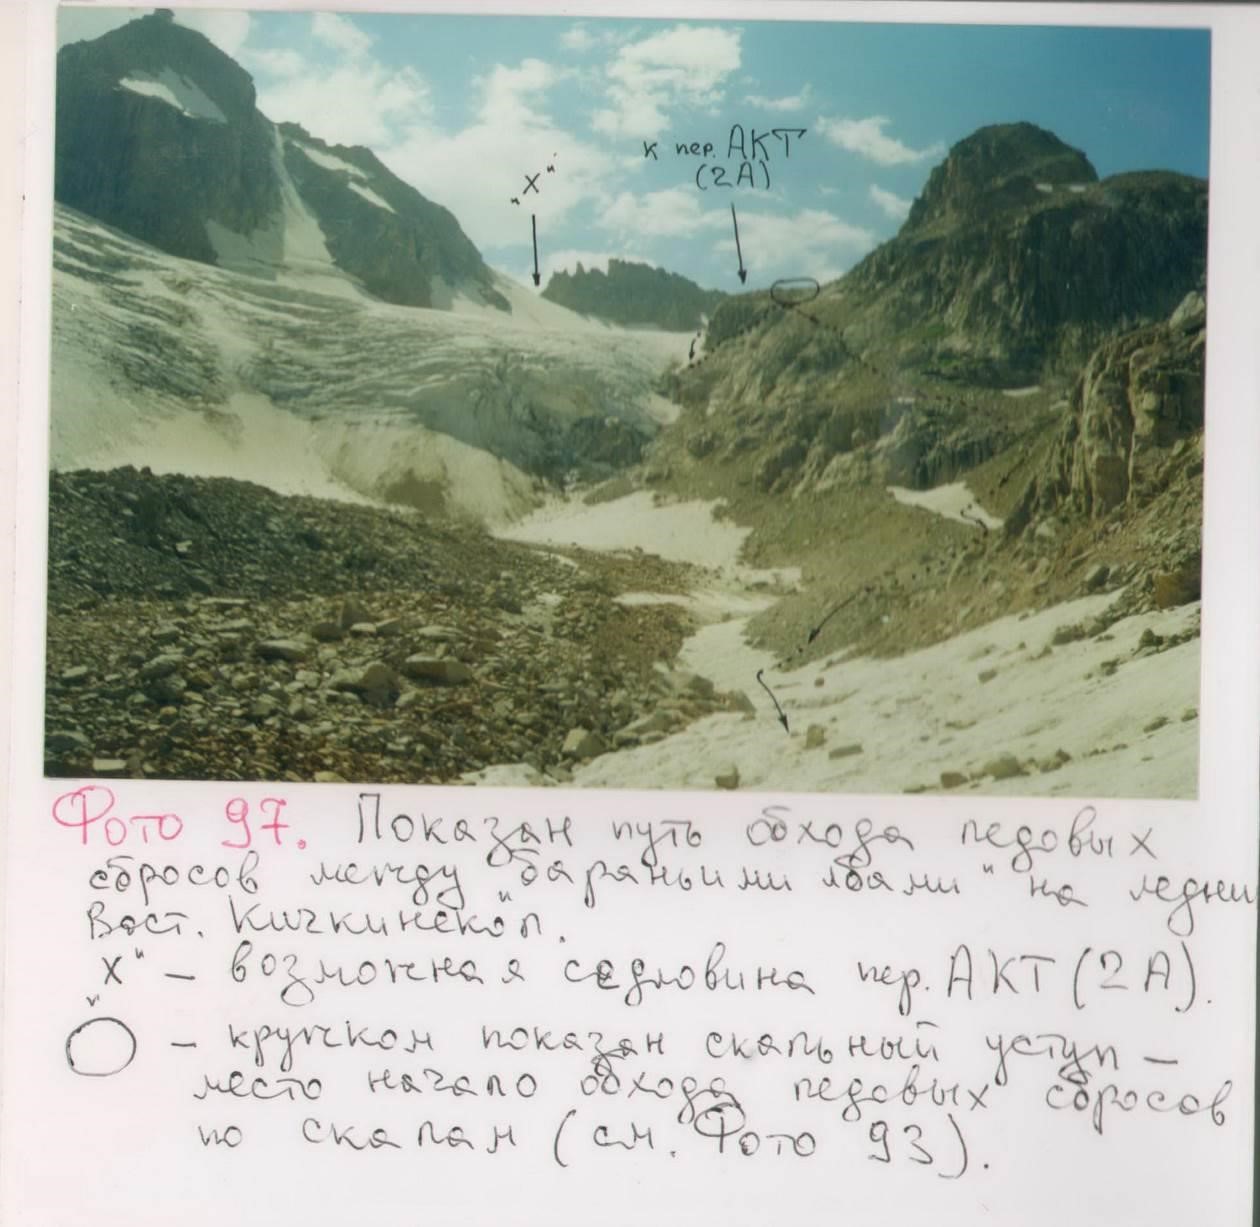 "X"
к пер. АКТ
(2А)
Фото 97. Показан путь обхода ледовых
сбросов между "бараньими лбами" на ледни
Вост. Кичкинекол.
"X" - возможная седловина пер. АКТ (2А).
- кружком показан скальный уступ -
место начало обхода ледовых сбросов
по скалам (см. Фото 93).